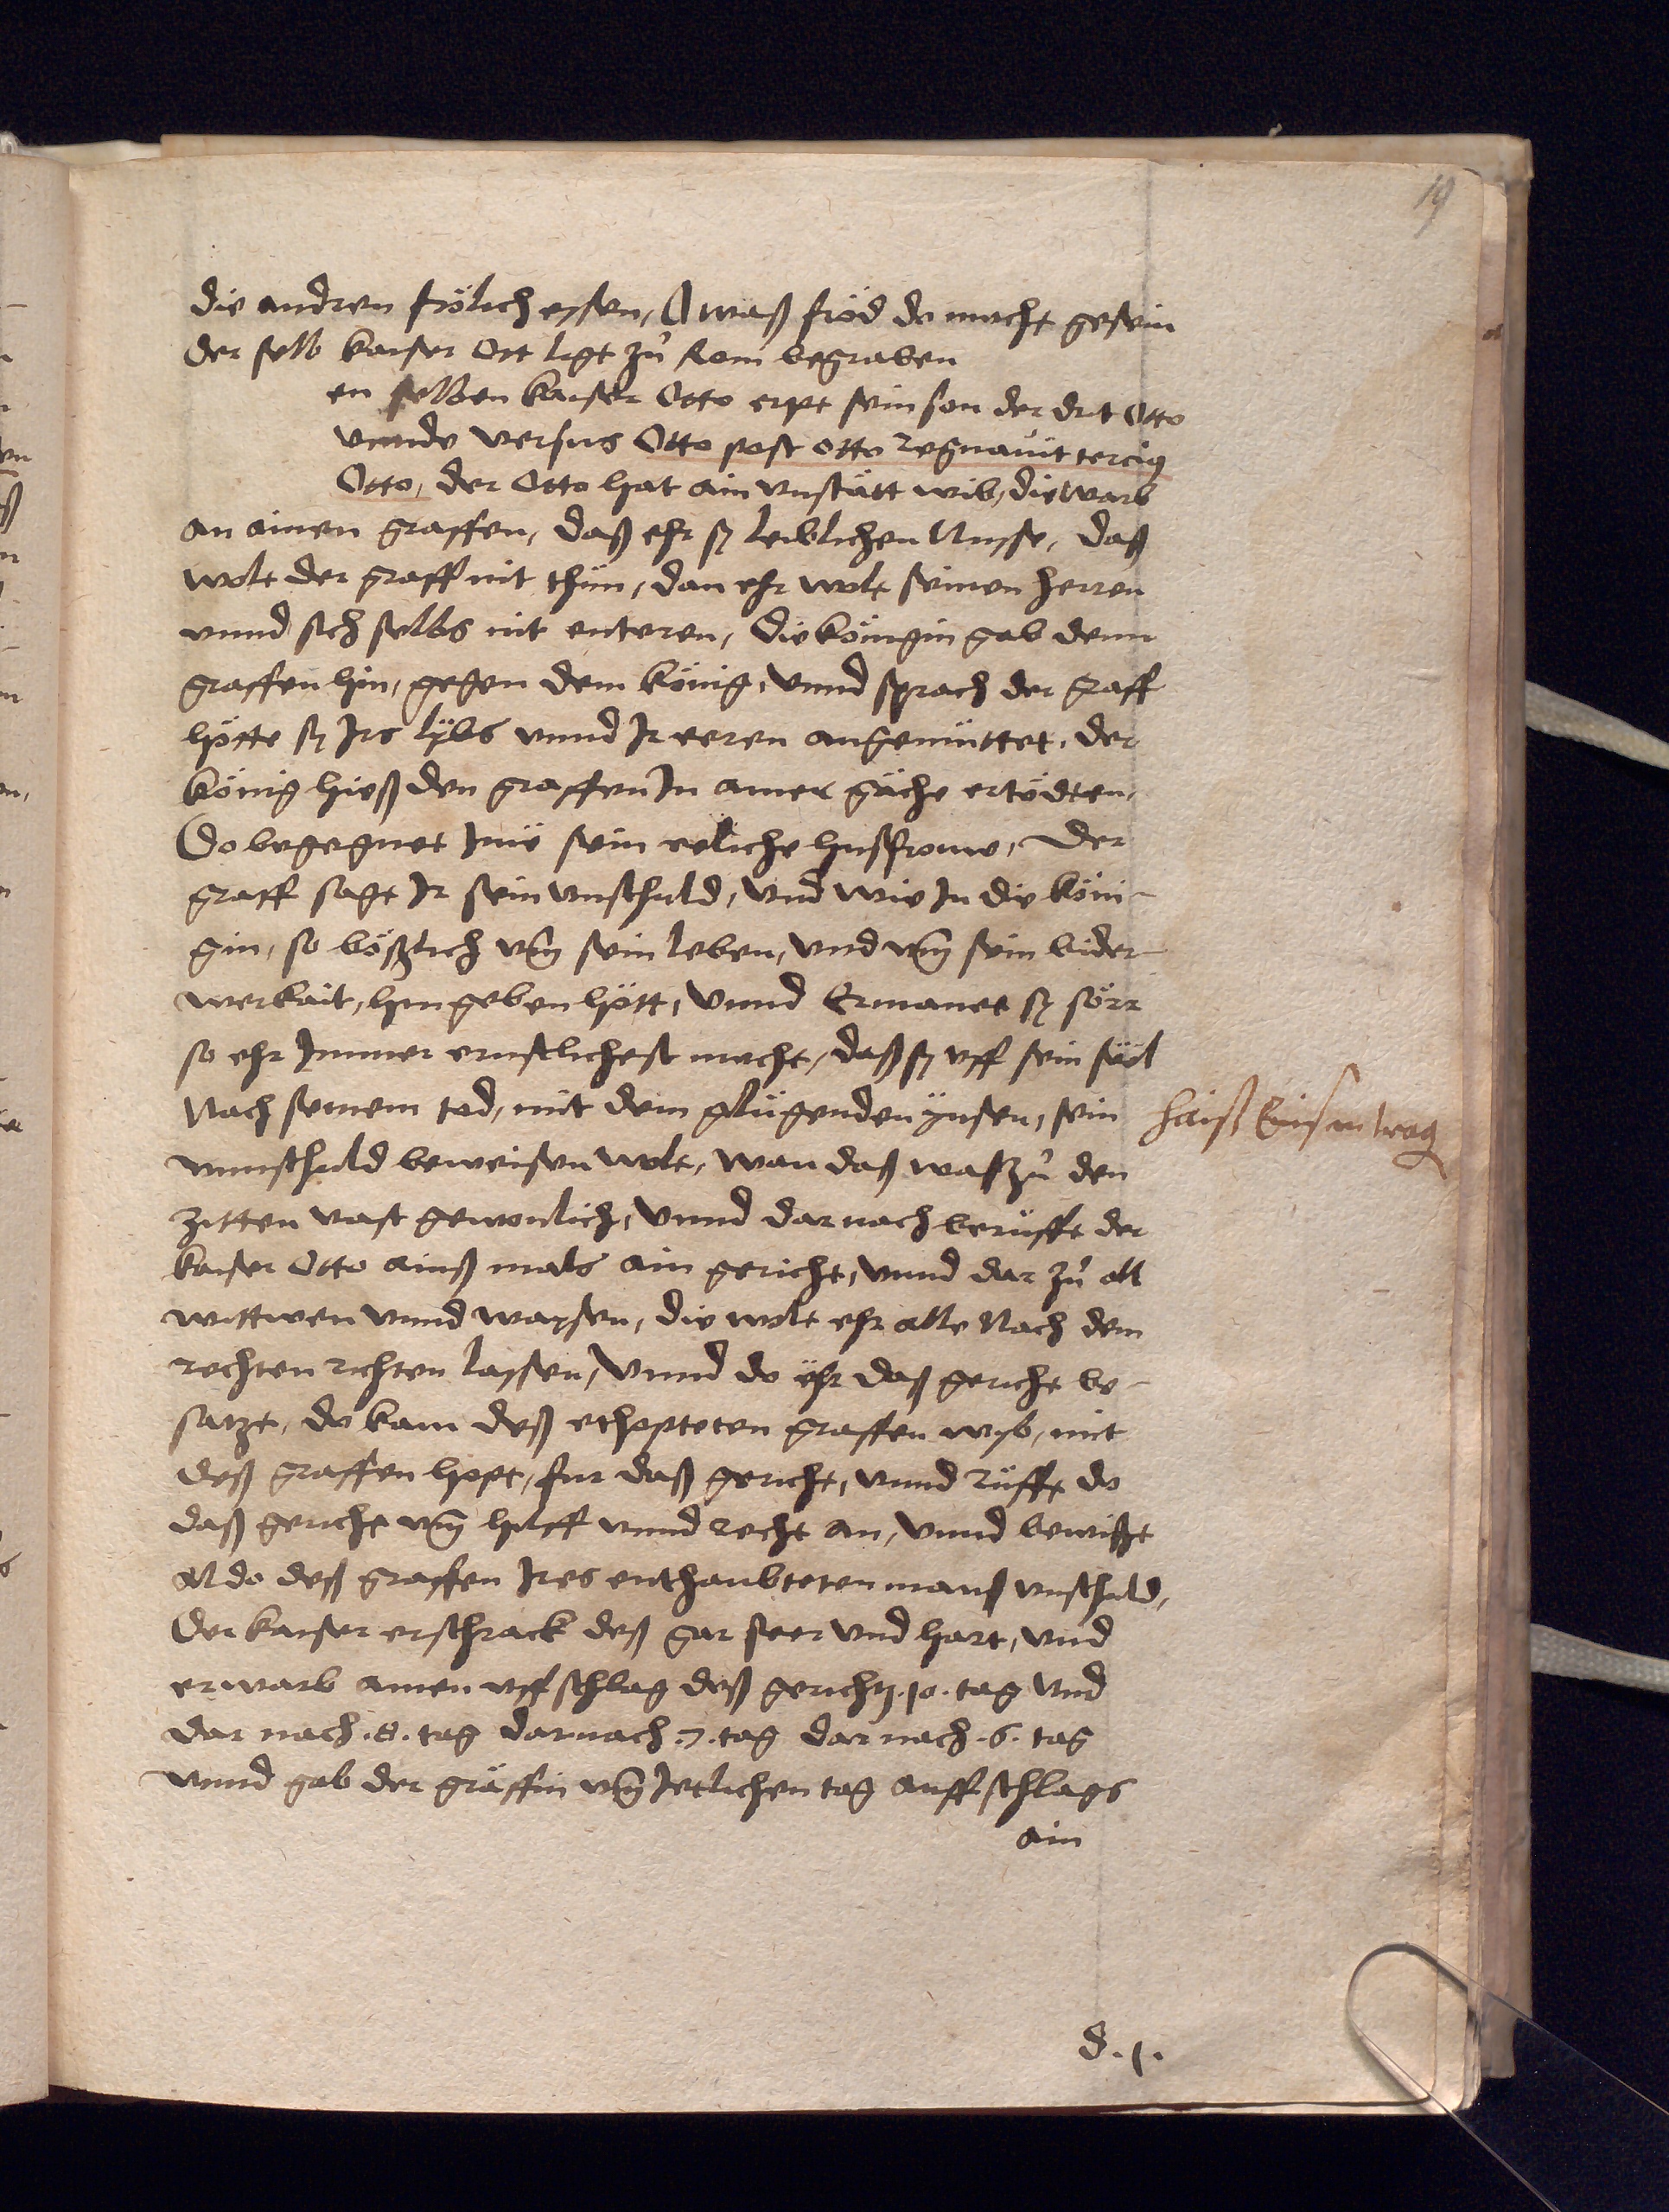 19
die andren frölich essen, O waß fröd do mocht gesein
der selb kaiser Ott ligt zů Rom begraben
en selben kaiser Otto erpt sein son der drit Otto
vnnde versus Otto post otto regnauit tercius
Otto, der Otto hat ain vnstätt wib, die warb
an ainen graffen, daß ehr sy leiblichen Nusse, daß
wolt der graff nit thün, dan ehr wolt seinen herren
vnnd sich selbs nit enteren, die köingin gab denn
graffen hin, gegen dem könig, vnnd sprach der graff
hötte sy Irs lybs vnnd Ir eeren angemüttet, der
könig hieß den graffen In ainer gäche ertödten,
Do begegnet Im sein eeliche husfrouw, der
graff sagt Ir sein vnschuld, vnd wie In die köni-
gin, so bößlich vm sein leben, vnd vm sein bider-
werkait, hin geben hött, vnnd Ermanet sy sörr
so ehr Immer ernstlichest mocht, daß sy vff sein säl
Nach seinem tod, mit dem glügenden ynsen, sein
vnnschuld beweisen wolt, wan daß waß zů den
zitten vast gewonlich, vnnd darnach berüfft der
kaiser Otto ainß mals ain gericht, vnnd dar zů all
wittwen vnnd waysen, die wolt ehr alle Nach dem
rechten richten lassen, vnnd do ehr daß gericht be-
satzt, do kam deß ethopteten graffen wyb, mit
deß graffen hopt, fur daß gericht, vnnd rüfft do
daß gericht vm hilff vnnd recht an, vnnd bewißt
Aldo deß graffen Ires enthaubteten manß vnschuld,
Der kaiser erschrack deß gar seer vnd hart, vnd
erwarb ainen vffschlag deß gerichtz .10. tag vnd
dar nach .8. tag darnach .7. tag dar nach .6. tag
vnnd gab der gräffin vm Ietlichen tag auffschlags
ain
haiß Eisin trag
d .1.